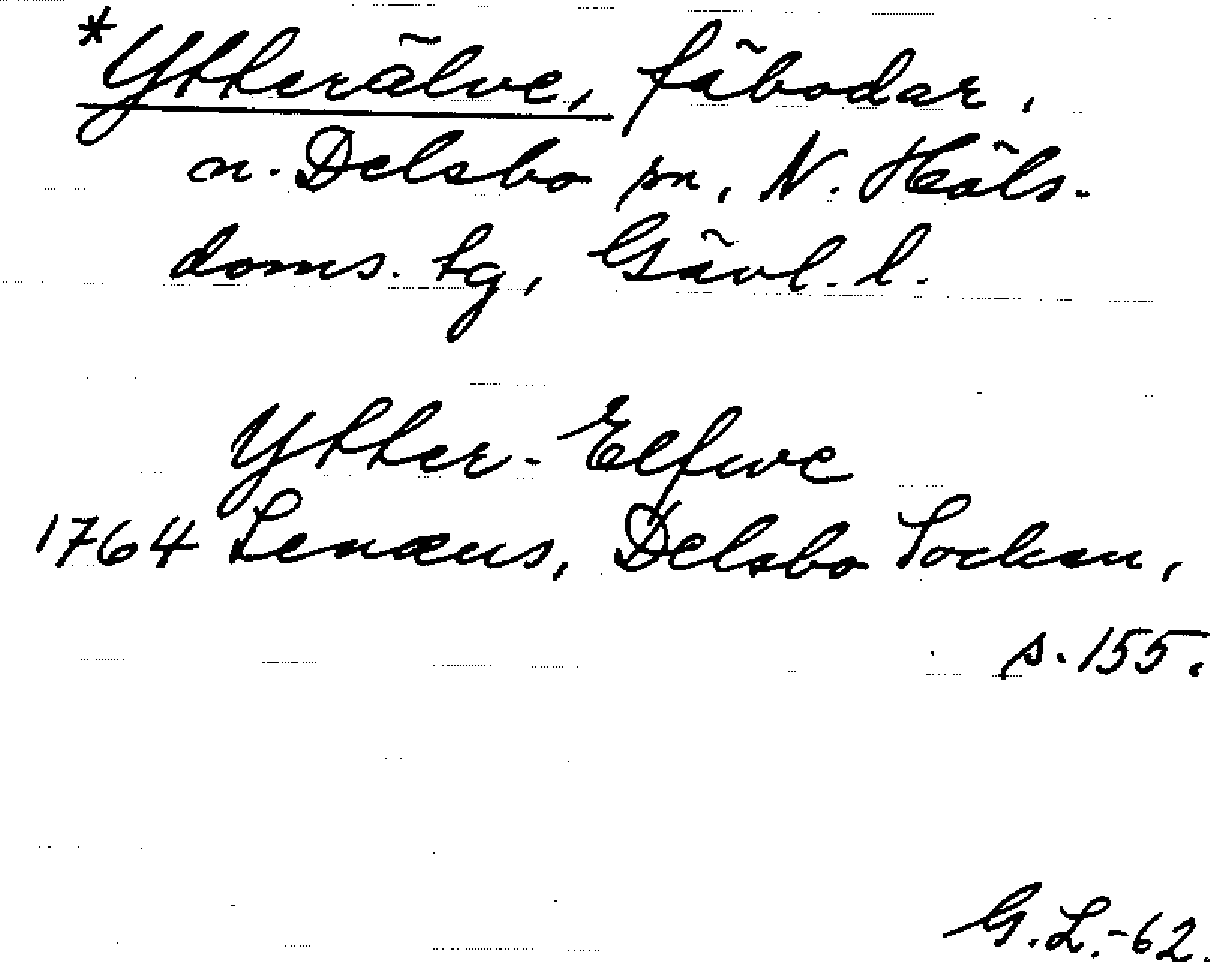 *Ytterälve, fäbodar,
n. Delsbo sn, N. Häls.
doms. tg, Gävl. l.
Ytter-Elfwe
1764 Lenæus, Delsbo Socken,
s. 155.
G. L.-62.